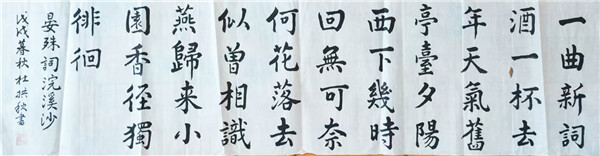 一曲新詞
酒一杯去
年天氣舊
亭臺夕陽
西下幾時
回無可奈
何花落去
似曾相識
燕歸来小
園香徑獨
徘徊
晏殊詞浣溪沙
戊戌暮秋杜拱秋書